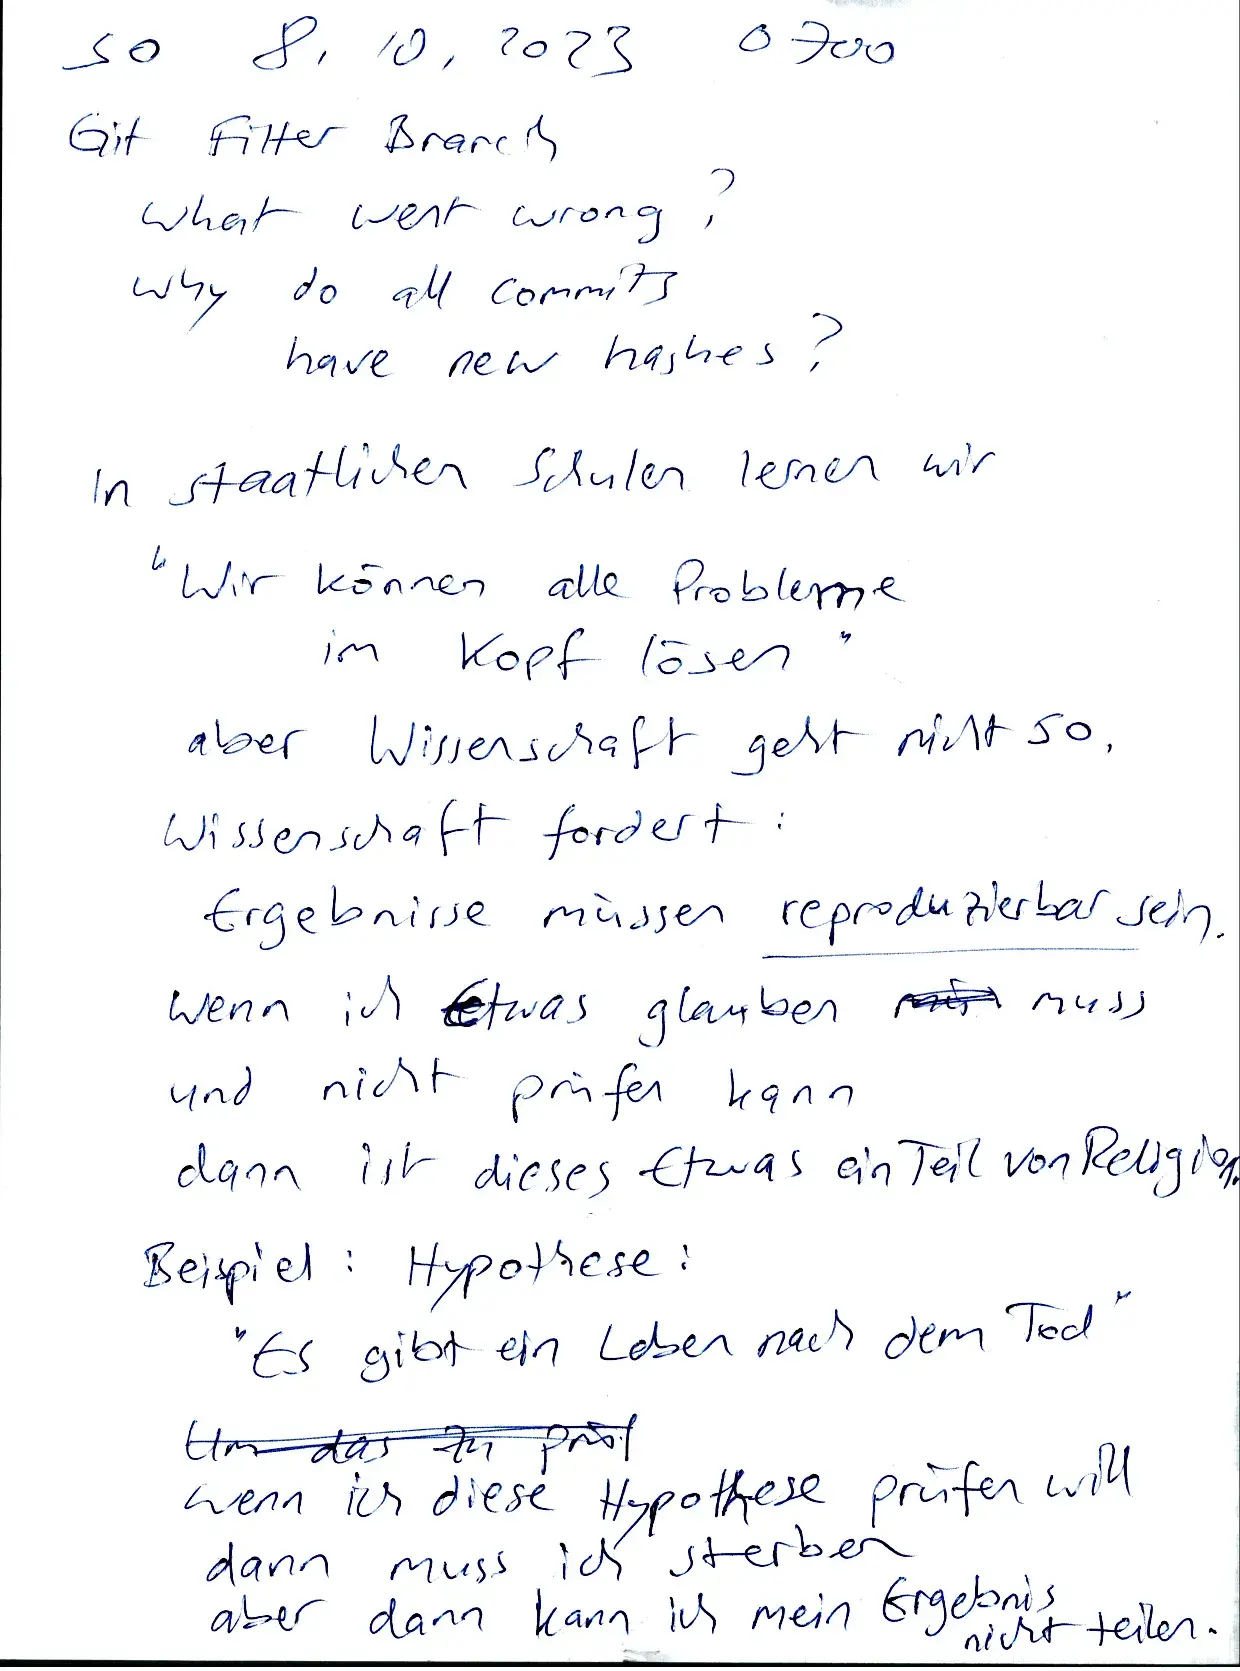 so 8. 10. 2023 0700
Git Filter Branch
what went wrong?
why do all commits
have new hashes?
In staatlichen Schulen lernen wir
"Wir können alle Probleme
im Kopf lösen"
aber Wissenschaft geht nicht so.
Wissenschaft fordert:
Ergebnisse müssen reproduzierbar sein.
wenn ich Etwas glauben muss
und nicht prüfen kann
dann ist dieses Etwas ein Teil von Religion.
Beispiel: Hypothese:
"Es gibt ein Leben nach dem Tod"
Um das zu prüf
wenn ich diese Hypothese prüfen will
dann muss ich sterben
aber dann kann ich mein Ergebnis
nicht teilen.